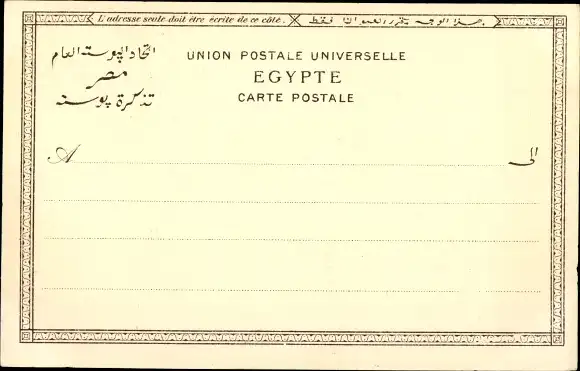 L'adresse seule doit être écrite de ce côté. هذا الوجه يتحرر العنوان فقط.
اتحاد البوستة العام
مصر
تذكرة بوسته
UNION POSTALE UNIVERSELLE
EGYPTE
CARTE POSTALE
A الى